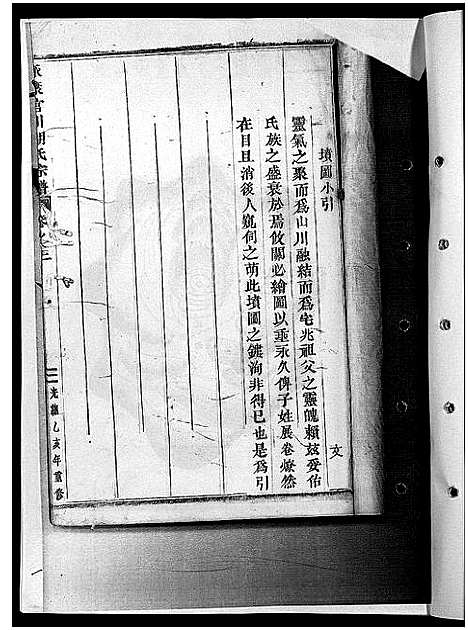 墳圖小引
靈氣之聚而爲山川融結而爲宅兆祖父之靈魄賴玆妥佑
氏族之盛衰於焉攸關必繪圖以垂永久俾子姓展卷燎然
在目且消後人窺伺之萌此墳圖之鐫洵非得已也是爲引
文
宮川胡氏宗譜
卷之三
光緒乙亥年重修